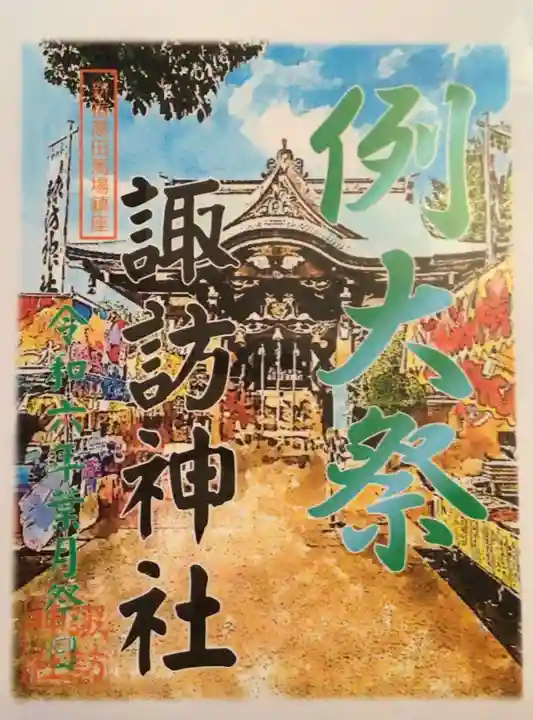 例大祭
諏訪神社
新宿高田馬場鎮座
令和六年葉月祭日
諏訪神社
諏訪神社